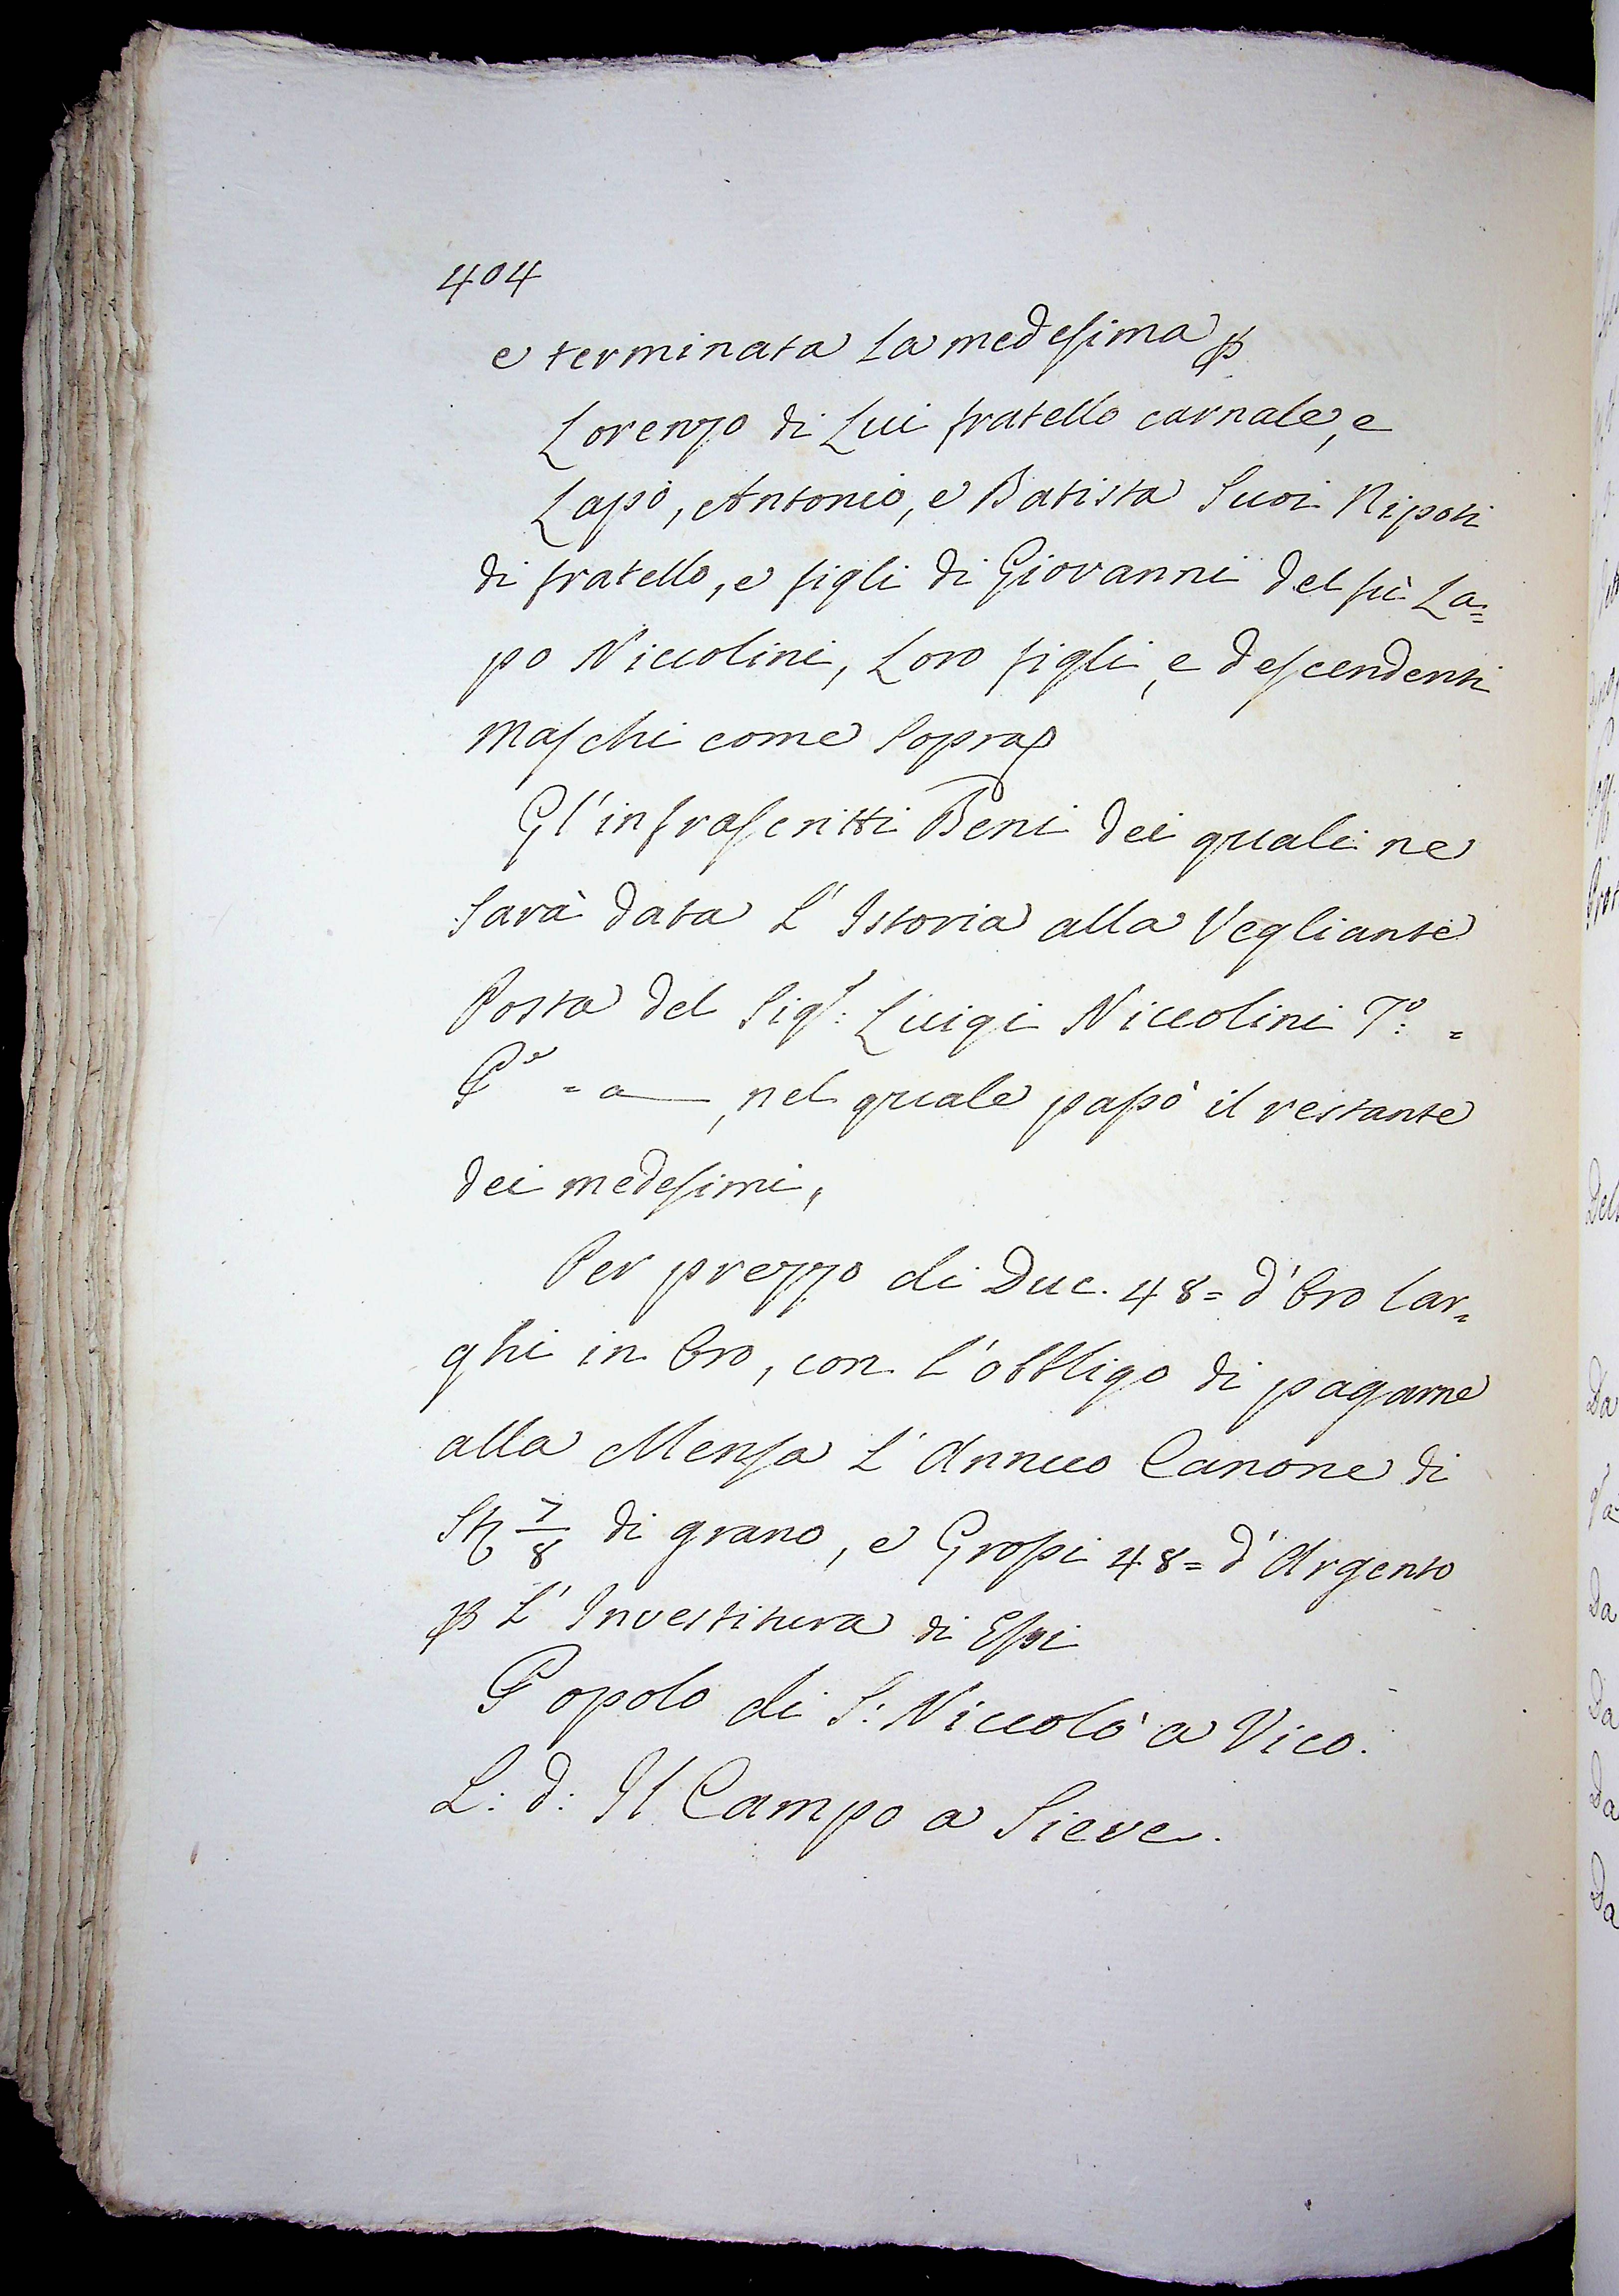 404
e terminata la medesima ꝑ
Lorenzo di Lui fratello carnale, e
Lapo, Antonio, e Batista Suoi Nipoti
di fratello, e figli di Giovanni del fù La=
po Niccolini, Loro figli, e descendenti
Maschi come Sopra
Gl'infrascritti Beni dei quali ne
Sarà data L'Istoria alla Vegliante
Posta del Sigr: Luigi Niccolini To: =
= a, nel quale passò il restante
dei medesimi,
Per prezzo di Duc. 48= d'Oro lar=
ghi in Oro, con l'obbligo di pagarne
alla Mensa L'Annuo Canone di
7/8 di grano, e Grossi 48= d'Argento
ꝑ L'Investitura di Essi
Popolo di S: Niccolò a Vico.
L: d: Il Campo a Sieve.